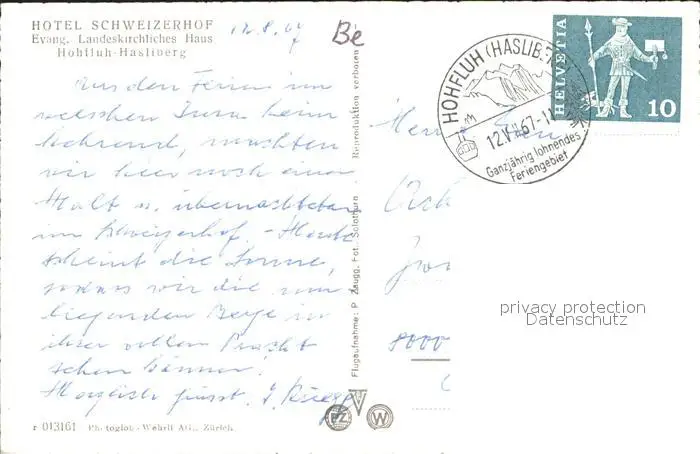 HOTEL SCHWEIZERHOF
Evang. Landeskirchliches Haus
Hohfluh-Hasliberg
12.8.67
Be
Aus den Ferien im
welschen Jura heim
kehrend, machten
wir hier noch einen
Halt u. übernachteten
im Schweizerhof. - Heute
scheint die Sonne,
sodass wir die um-
liegenden Berge in
ihrer vollen Pracht
sehen können!
Herzlich grüsst
Reproduktion verboten
Flugaufnahme: P. Zaugg, Fot., Solothurn
HOHFLUH (HASLIB.
12.V 67-1
Ganzjährig lohnendes
Feriengebiet
HELVETIA
10
8000
privacy protection
Datenschutz
PZ
W
r 013161 Photoglob-Wehrli AG., Zürich